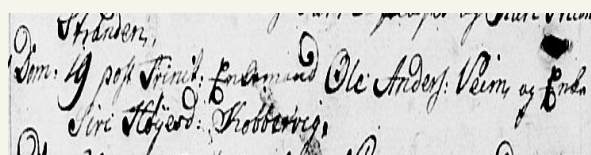 Stranden,
Dom: 19 post Trinit: Enkemand Ole Anders: Veim, og Enke
Siri Kobbervig,